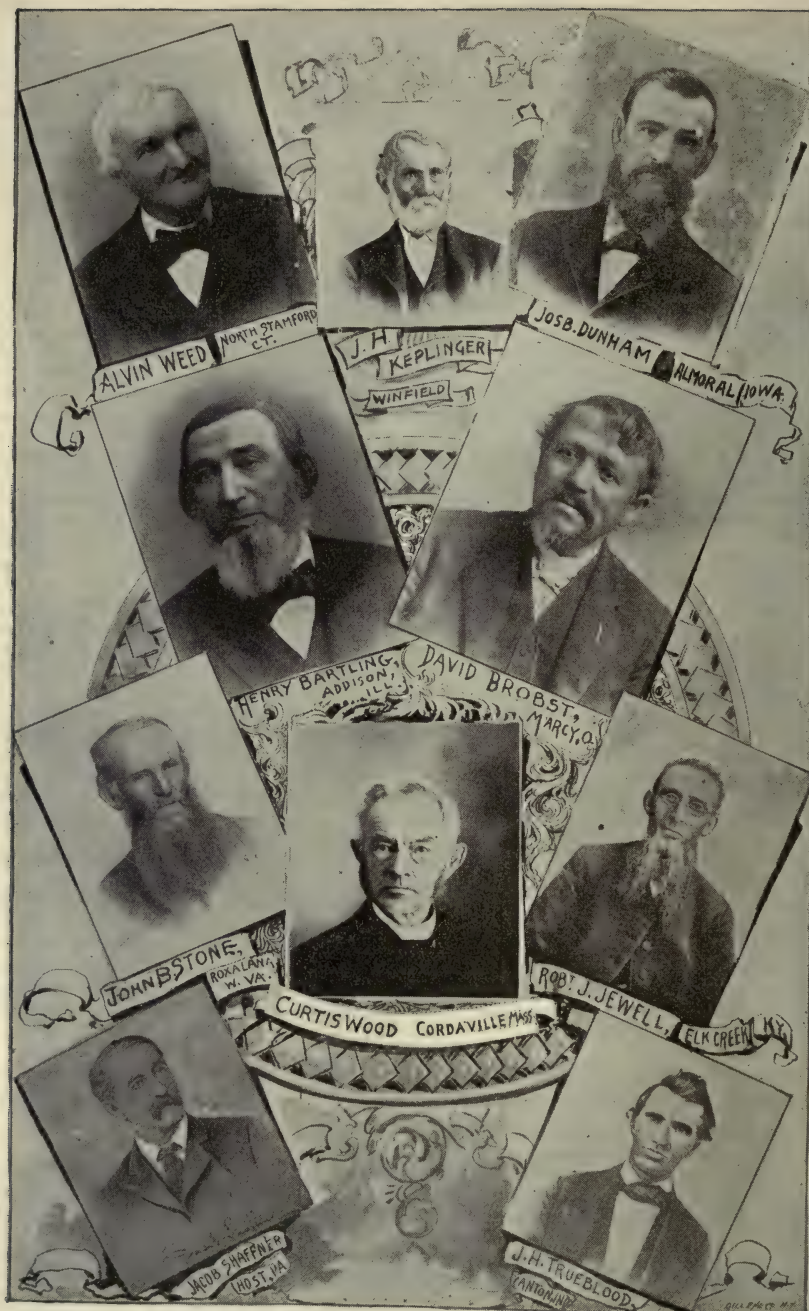 ALVIN WEED
NORTH STAMFORD
CT.
J. H.
KEPLINGER
WINFIELD
JOS B. DUNHAM
ALMORAL IOWA.
HENRY BARTLING,
ADDISON,
ILL.
DAVID BROBST,
MARCY, O.
JOHN B STONE,
ROXALANA
W. VA.
CURTIS WOOD CORDAVILLE MASS.
ROBT. J. JEWELL,
ELK CREEK KY.
JACOB SHAFFNER
HOST, PA
J. H. TRUEBLOOD,